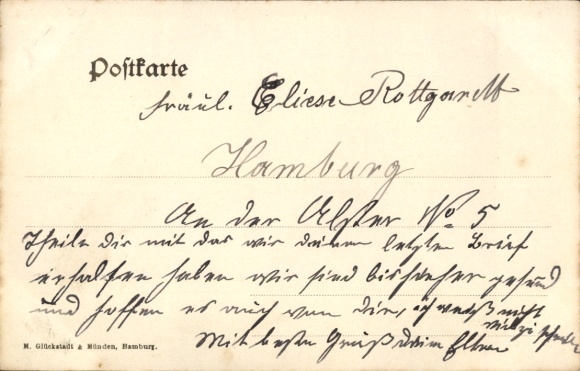 Postkarte
Fräul. Eliese Rottgardt
Hamburg
An der Alster No 5
Theile dir mit das wir deinen letzten Brief
erhalten haben wir sind bis daher gesund
und hoffen es auch von dir, ich weiß nicht
viel zu schreiben
Mit besten Gruß deine Eltern
M. Glückstadt & Münden, Hamburg.